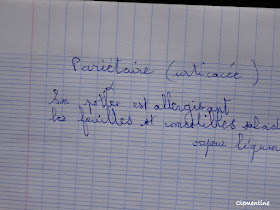 Pariétaire (urticacée)
Son pollen est allergisant
les feuilles st comestibles salad
soupe légum
Clementine